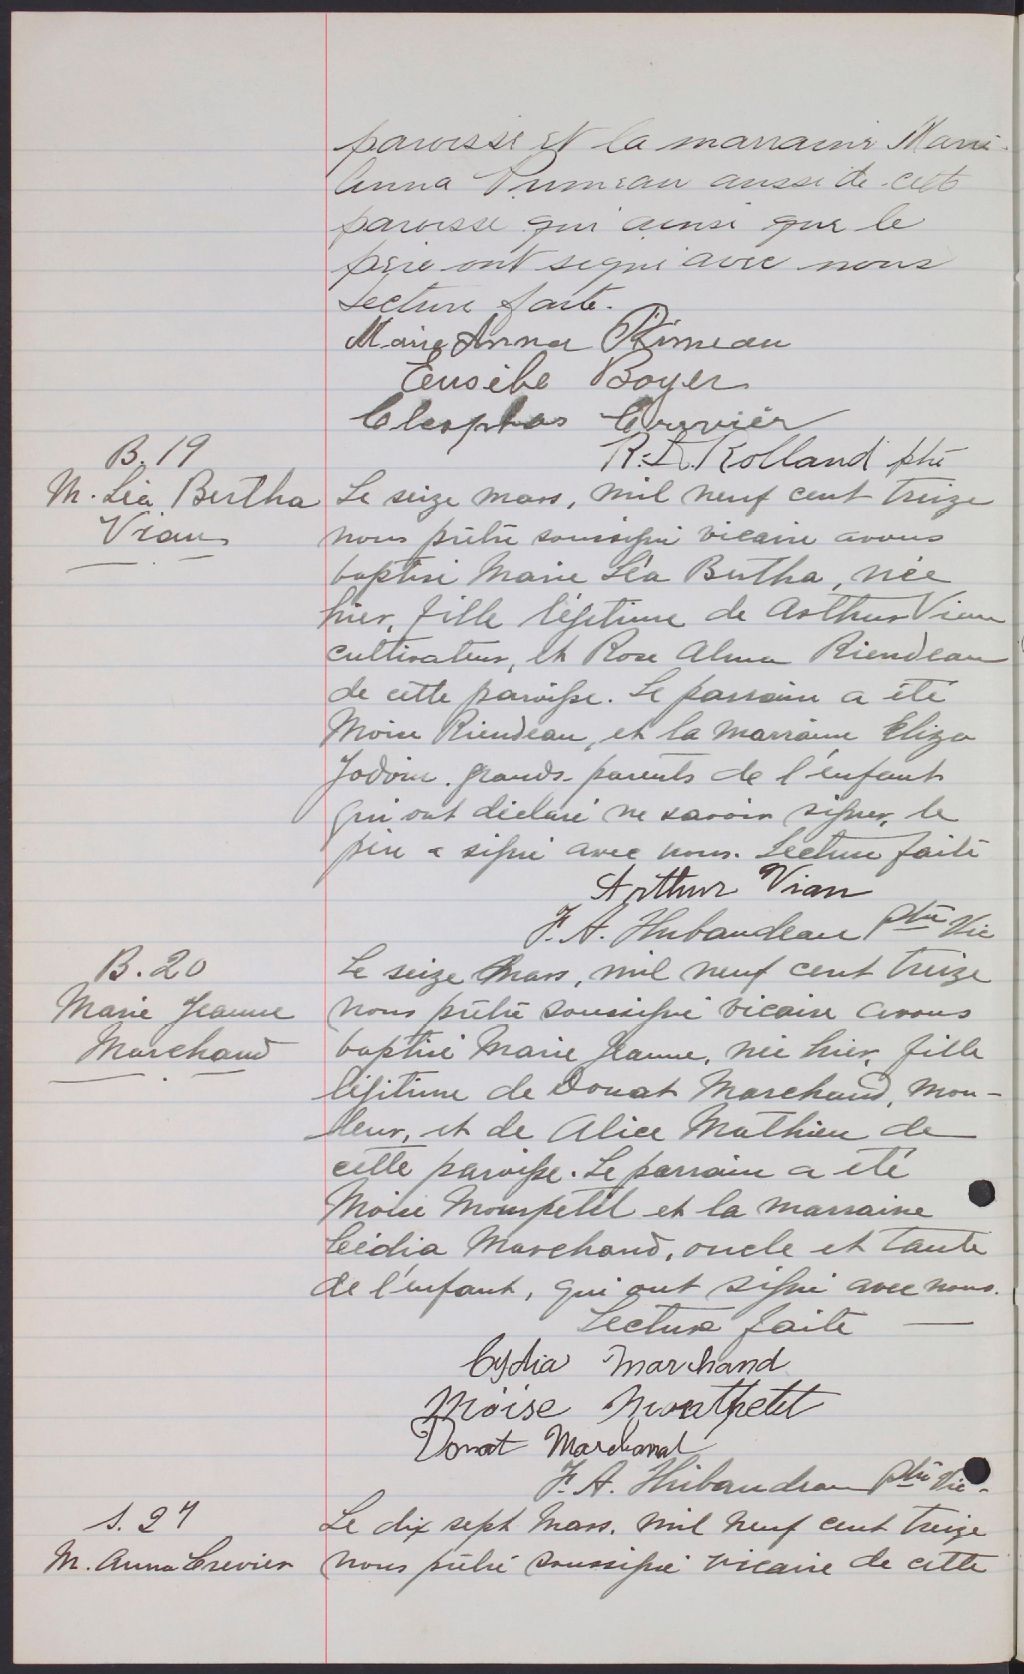 paroisse et la marraine Marie-
Anna Primeau aussi de cette
paroisse qui ainsi que le
père ont signé avec nous
Lecture faite.
Marie Anna Primeau
Eusèbe Boyer
Cleophas Crevier
R. L. Rolland ptre
B. 19
M. Léa Bertha
Viau
Le seize mars, mil neuf cent treize
nous prêtre soussigné vicaire avons
baptisé Marie Léa Bertha, née
hier, fille légitime de Arthur Viau
cultivateur, et Rose Alma Riendeau
de cette paroisse. Le parrain a été
Moise Riendeau, et la marraine Eliza
Jodoin. grands-parents de l'enfant
qui ont déclaré ne savoir signer, le
père a signé avec nous. Lecture faite
Arthur Viau
F. A. Thibaudeau Ptre Vic
B. 20
Marie Jeanne
Marchand
Le seize Mars, mil neuf cent treize
nous prêtre soussigné vicaire avons
baptisé Marie Jeanne, née hier, fille
légitime de Donat Marchand, mou-
leur, et de Alice Mathieu de
cette paroisse. Le parrain a été
Moise Monpetit et la marraine
Cédia Marchand, oncle et tante
de l'enfant, qui ont signé avec nous.
Lecture faite —
Cydia Marchand
Moïse Montpetit
Donat Marchand
F. A. Thibaudeau Ptre Vic.
S. 27
M. Anna Crevier
Le dix sept Mars, mil neuf cent treize
nous prêtre soussigné vicaire de cette